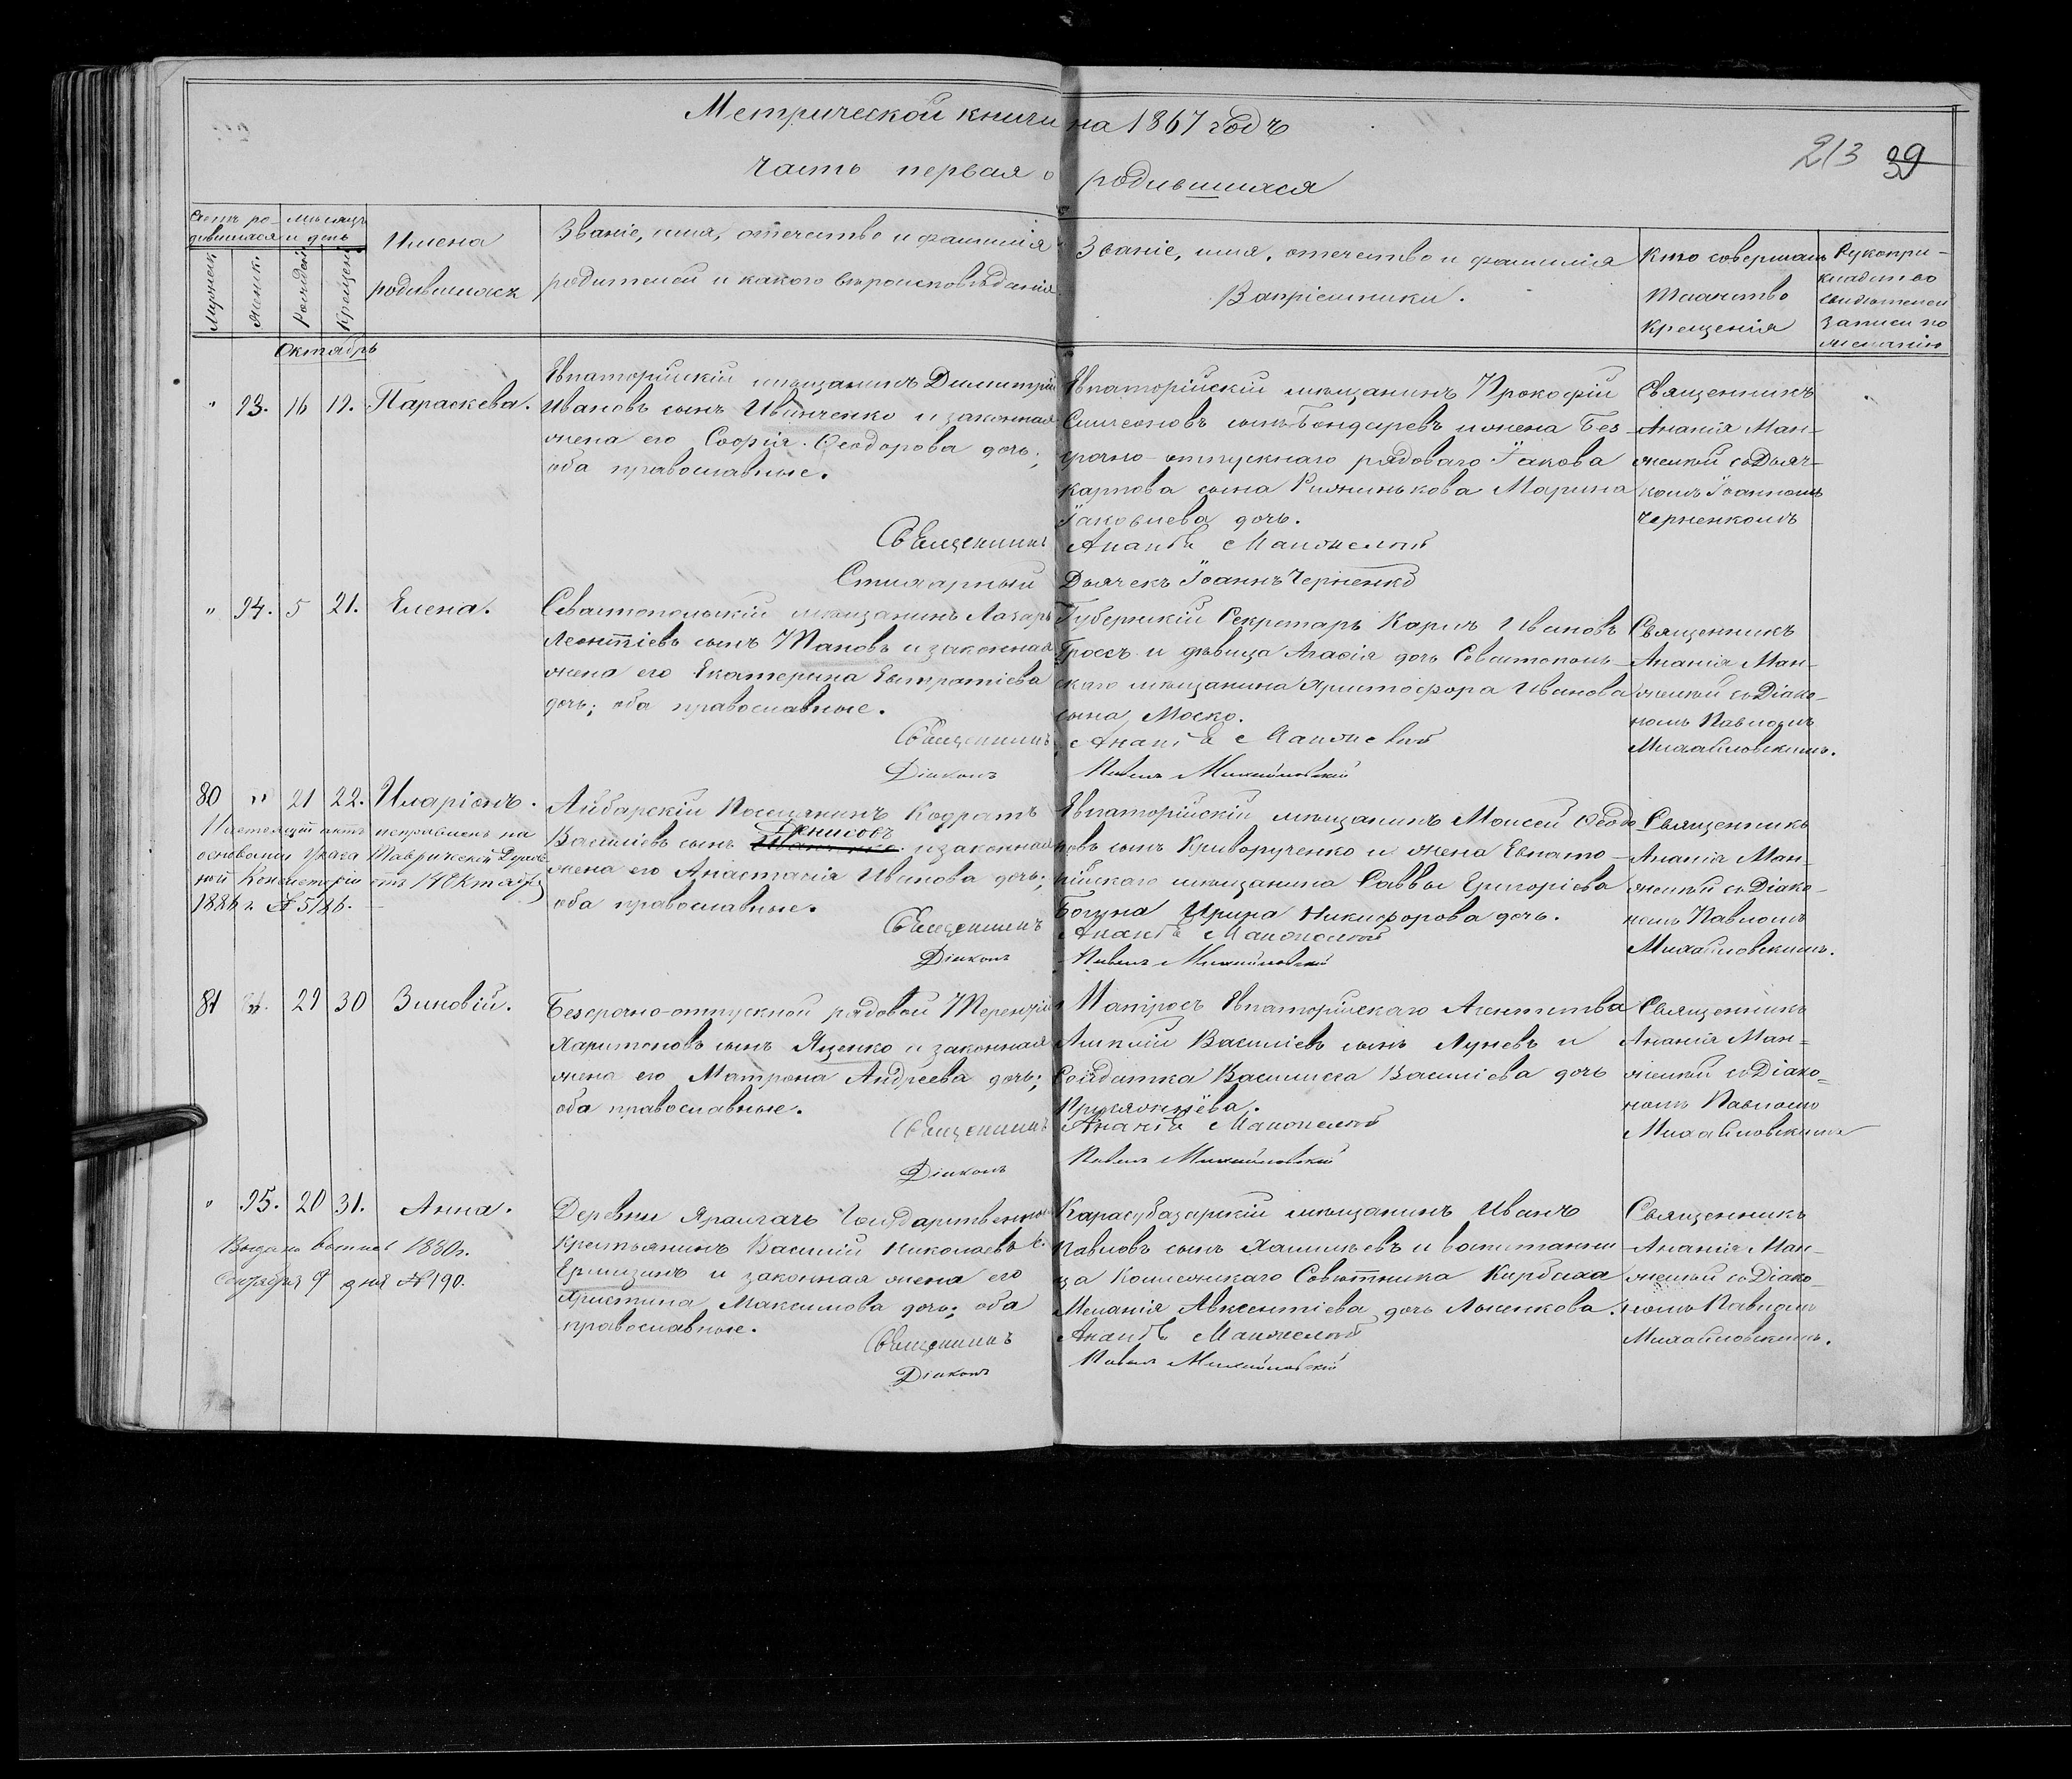 Метрической книги на 1867 годъ
213 39
Часть первая о родившихся
Счетъ ро-
дившихся
Мужеск
Женск.
мѣсяцъ
и день
Рожден
Крещен
Имена
родившихъ
Званіе, имя, отечество и фамилія
родителей и какого вѣроисповѣданія
Званіе, имя, отечество и фамилія
Вапріемники.
Кто совершалъ
Таинство
Крещенія
Рукопри-
кладство
свидѣтелей
записи по
желанію
Октябрь
" 93. 16 19. Параскева.
Евпаторійскій мѣщанинъ Димитрій
Ивановъ сынъ Иванченко и законная
жена его Софія Ѳеодорова дочь;
оба православные.
Евпаторійскій мѣщанинъ Прокофій
Симеоновъ сынъ Бондаревъ и жена Без-
срочно-отпускнаго рядоваго Іакова
Карпова сына Марина
Іаковлева дочь.
Священникъ
Ананія Ман-
желей съ Дьяч-
комъ Іоанномъ
Черненкомъ
Священникъ Ананія
Стихарный Дьячекъ Іоаннъ Черненко
" 94. 5 21. Елена.
Севастопольскій мѣщанинъ Лазарь
Леонтіевъ сынъ и законная
жена его Екатерина Евстратіева
дочь; оба православные.
Губернскій Секретарь Карлъ Ивановъ
Гроссъ и дѣвица дочь Севастополь-
скаго мѣщанина Христофора Иванова
сына Моско.
Священникъ
Ананія Ман-
желей съ Діако-
номъ Павломъ
Михайловскимъ.
Священникъ Ананія
Діаконъ Павелъ Михайловскій
80 " 21 22. Иларіонъ.
Настоящій актъ исправленъ на
основаніи Указа Таврической Духов-
ной Консисторіи отъ 14 Октября
1886 г. № 5186.
Айбарскій Поселянинъ Кодратъ
Денисовъ
Василіевъ сынъ и законная
жена его Анастасія Иванова дочь;
оба православные.
Евпаторійскій мѣщанинъ Моисей Ѳеодо
ровъ сынъ Криворученко и жена Евпато-
рійскаго мѣщанина Саввы Григоріева
Богуна Ирина Никифорова дочь.
Священникъ
Ананія Ман-
желей съ Діако-
номъ Павломъ
Михайловскимъ.
Священникъ Ананія
Діаконъ Павелъ Михайловскій
81 29 30 Зиновій.
Безсрочно-отпускной рядовой Терентій
Харитоновъ сынъ Яценко и законная
жена его Матрона Андреева дочь;
оба православные.
Матросъ Евпаторійскаго Агентства
Василіевъ сынъ Луневъ и
Солдатка Василисса Василіева дочь
Священникъ
Ананія Ман-
желей съ Діако-
номъ Павломъ
Михайловскимъ
Священникъ Ананія
Діаконъ Павелъ Михайловскій
" 95. 20 31. Анна.
Выдана выпись 1880 г.
Сентября 9 дня № 190.
Деревни Ярылгачъ Государственный
крестьянинъ Василій Николаевъ с.
и законная жена его
Христина Максимова дочь; оба
православные.
Карасубазарскій мѣщанинъ Иванъ
Павловъ сынъ и воспитанни
ца Коллежскаго Совѣтника
Меланія Авксентіева дочь Лысенкова.
Священникъ
Ананія Ман-
желей съ Діако-
номъ Павломъ
Михайловскимъ.
Священникъ Ананія
Діаконъ Павелъ Михайловскій